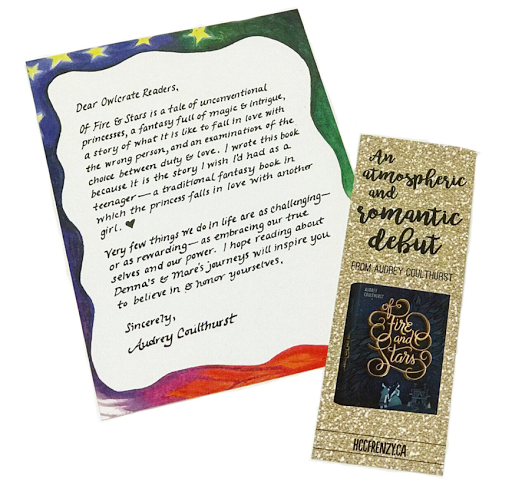 Dear Owlcrate Readers,
Of Fire & Stars is a tale of unconventional
princesses, a fantasy full of magic & intrigue,
a story of what it is like to fall in love with
the wrong person, and an examination of the
choice between duty & love. I wrote this book
because it is the story I wish I'd had as a
teenager — a traditional fantasy book in
which the princess falls in love with another
girl. ♥
Very few things we do in life are as challenging—
or as rewarding— as embracing our true
selves and our power. I hope reading about
Denna's & Mare's journeys will inspire you
to believe in & honor yourselves.
Sincerely,
Audrey Coulthurst
An
atmospheric
and
romantic
debut
FROM AUDREY COULTHURST
AUDREY
COULTHURST
Of
Fire
and
Stars
HCCFRENZY.CA